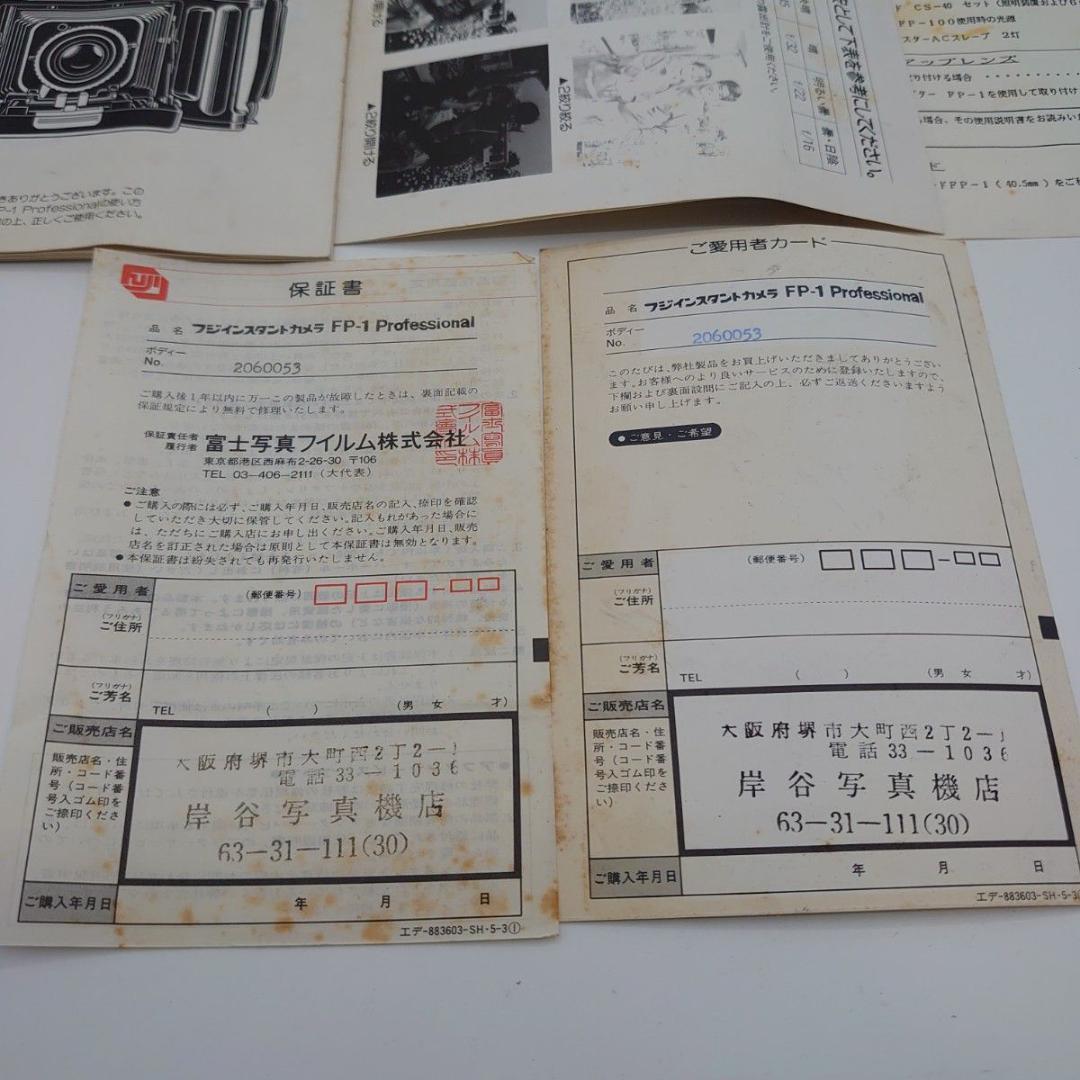 きありがとうございます。この
P-1 Professionalの使い方
の上、正しくご使用ください。
▲2絞り開ける
▲2絞り絞る
として下表を参考にしてください。
明るい曇
曇・日陰
f/32
f/22
f/16
CS-40 セット
FP-100使用時の光源
スターACスレーブ 2灯
アップレンズ
取り付ける場合
ター FP-1を使用して取り付け
場合、その使用説明書をお読みい
FUJI
保証書
品 名 フジインスタントカメラ FP-1 Professional
ボディー
No. 2060053
ご購入後1年以内に万一この製品が故障したときは、裏面記載の
保証規定により無料で修理いたします。
保証責任者
履行者
富士写真フイルム株式会社
東京都港区西麻布2-26-30 〒106
TEL 03-406-2111(大代表)
ご注意
●ご購入の際には必ず、ご購入年月日、販売店名の記入、捺印を確認
していただき大切に保管してください。記入もれがあった場合に
は、ただちにご購入店にお申し出ください。ご購入年月日、販売
店名を訂正された場合は原則として本保証書は無効となります。
●本保証書は紛失されても再発行いたしません。
ご愛用者
(郵便番号)
(フリガナ)
ご住所
(フリガナ)
ご芳名
TEL ( ) (男 女 才)
ご販売店名
販売店名・住
所・コード番
号(コード番
号入ゴム印を
ご捺印くださ
い)
大阪府堺市大町西2丁2-1
電話33-1036
岸谷写真機店
63-31-111(30)
ご購入年月日
年 月 日
エデ-883603-SH-5-3①
ご愛用者カード
品 名 フジインスタントカメラ FP-1 Professional
ボディー
No. 2060053
このたびは、弊社製品をお買上げいただきましてありがとうござい
ます。お客様へのより良いサービスのために登録いたしますので、
下欄および裏面設問にご記入の上、必ずご返送くださいますよう
お願い申し上げます。
●ご意見・ご希望
ご愛用者
(郵便番号)
(フリガナ)
ご住所
(フリガナ)
ご芳名
TEL ( ) (男 女 才)
ご販売店名
販売店名・住
所・コード番
号(コード番
号入ゴム印を
ご捺印くださ
い)
大阪府堺市大町西2丁2-1
電話33-1036
岸谷写真機店
63-31-111(30)
ご購入年月日
年 月 日
エデ-883603-SH-5-3